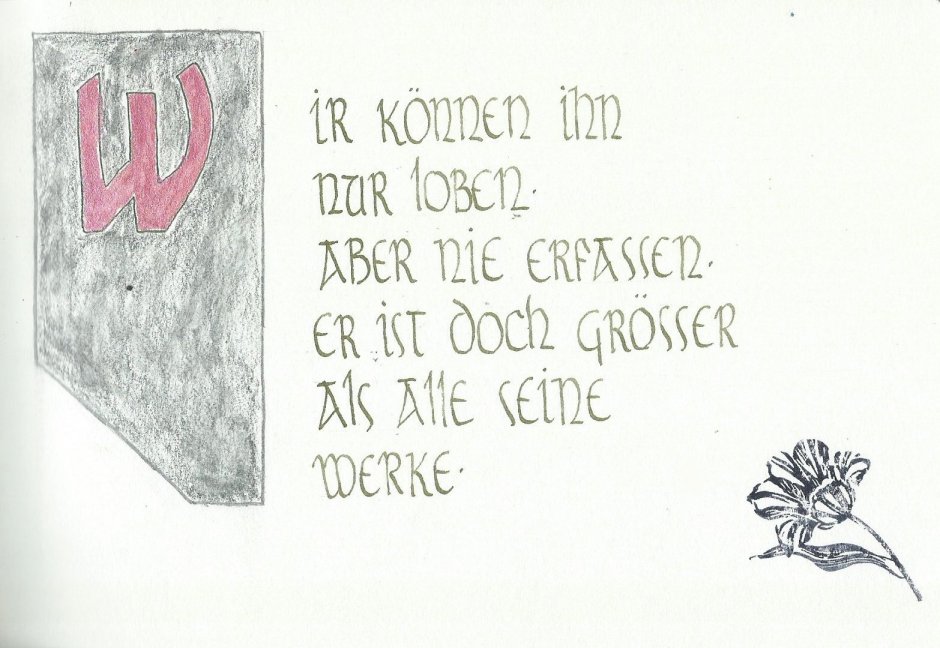 WIR KÖNNEN IHN
NUR LOBEN.
ABER NIE ERFASSEN.
ER IST DOCH GRÖSSER
ALS ALLE SEINE
WERKE.